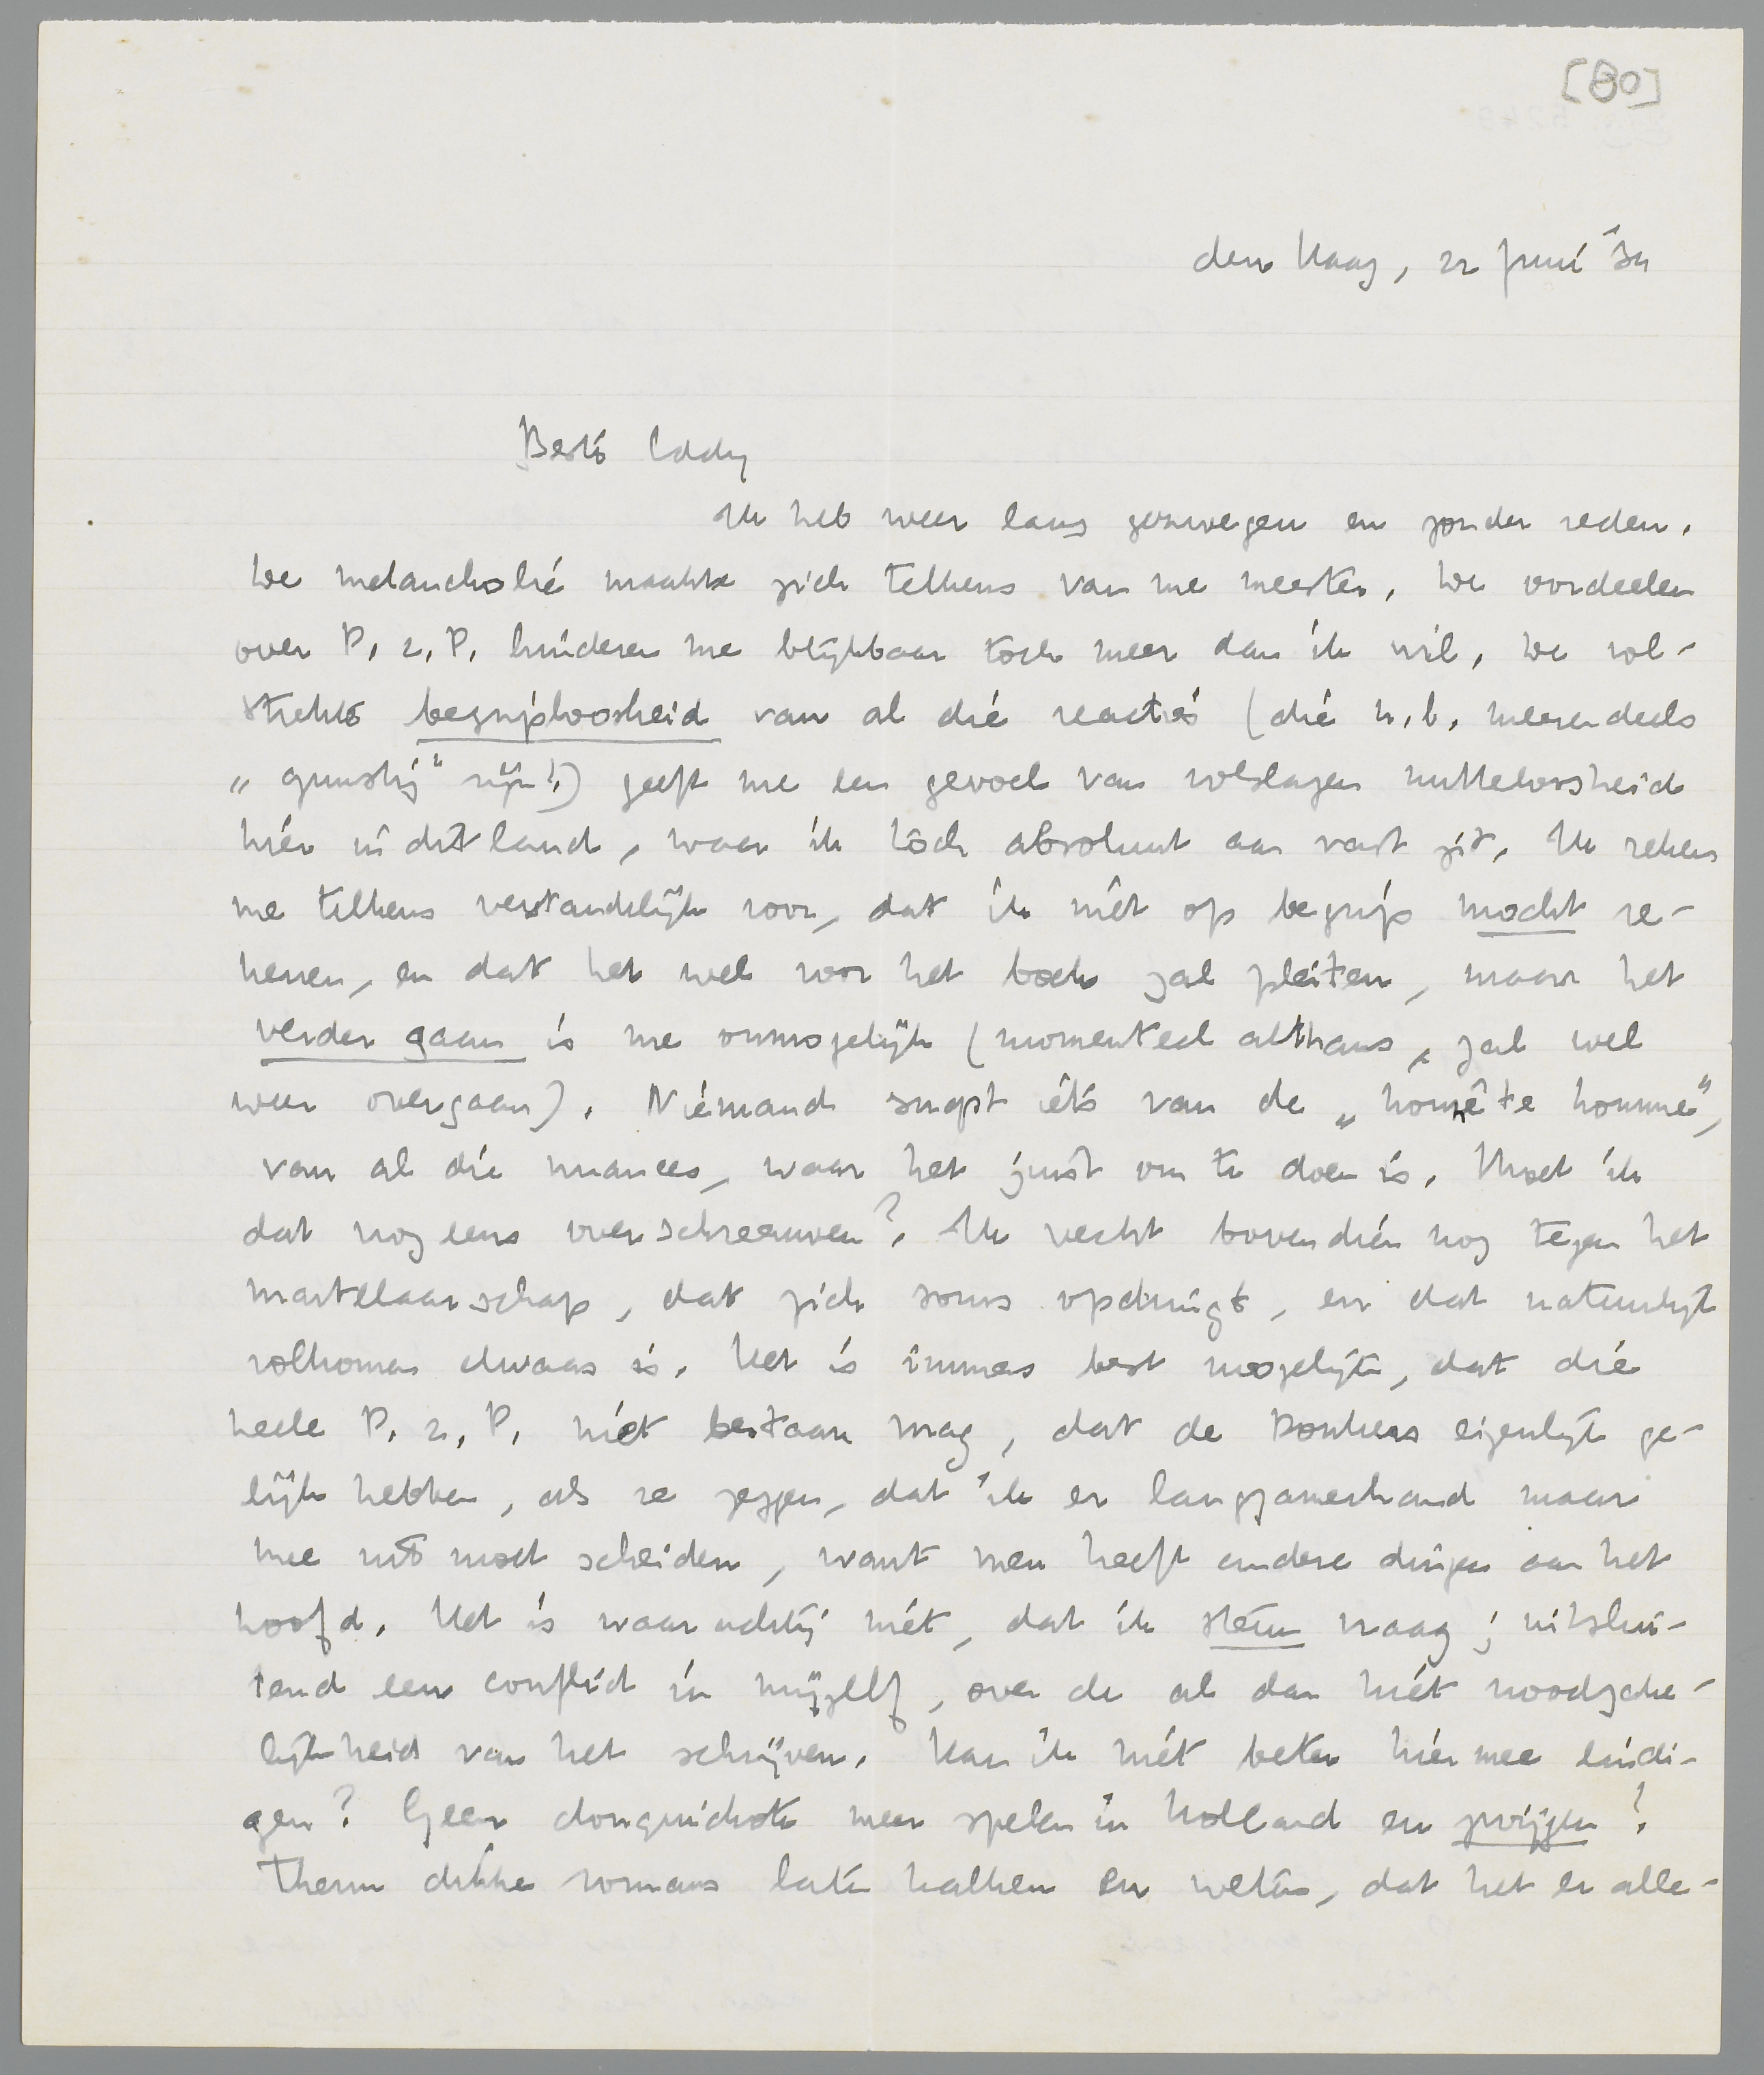 [80]
den Haag, 22 Juni '34
Beste Eddy
Ik heb weer lang gezwegen en zonder reden.
De melancholie maakte zich telkens van me meester. De oordeelen
over P. z. P. hinderen me blijkbaar toch meer dan ik wil. De vol-
strekte begriploosheid van al die reacties (die n.b. meerendeels
„gunstig" zijn!) geeft me een gevoel van volslagen nutteloosheid
hier in dit land, waar ik tóch absoluut aan vast zit. Ik reken
me telkens verstandelijk voor, dat ik niet op begrip mocht re-
kenen, en dat het wel voor het boek zal pleiten, maar het
verder gaan is me onmogelijk (momenteel althans, zal wel
weer overgaan). Niemand snapt iets van de „honnête homme",
van al die nuances, waar het juist om te doen is. Moet ik
dat nog eens overschreeuwen? Ik vecht bovendien nog tegen het
martelaarschap, dat zich soms opdringt, en dat natuurlijk
volkomen dwaas is. Het is immers best mogelijk, dat die
heele P. z. P. niet bestaan mag, dat de Donkers eigenlijk ge-
lijk hebben, als ze zeggen, dat ik er langzamerhand maar
mee uit moet scheiden, want men heeft andere dingen aan het
hoofd. Het is waarachtig niet, dat ik steun vraag; uitslui-
tend een conflict in mijzelf, over de al dan niet noodzake-
lijkheid van het schrijven. Kan ik niet beter hiermee eindi-
gen? Geen donquichote meer spelen in Holland en zwijgen?
Theun dikke romans laten kalken en weten, dat het er alle-